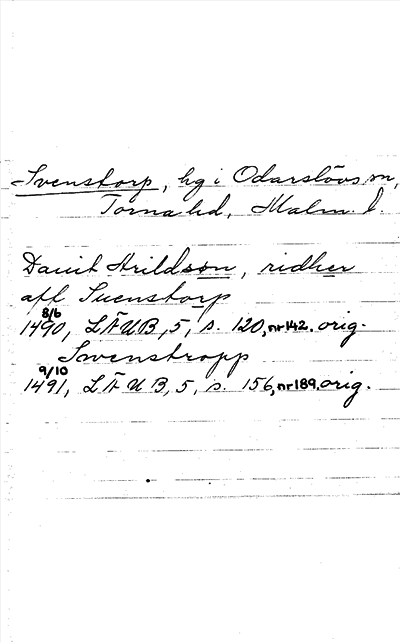 Svenstorp, hg i Odarslövs sn,
Torna hd, Malm. l.
Dauit Arildsøn, ridher
aff Suenstorp
8/6
1490, LÄUB, 5, s. 120, nr 142. orig.
Swenstropp
9/10
1491, LÄUB, 5, s. 156, nr 189. orig.